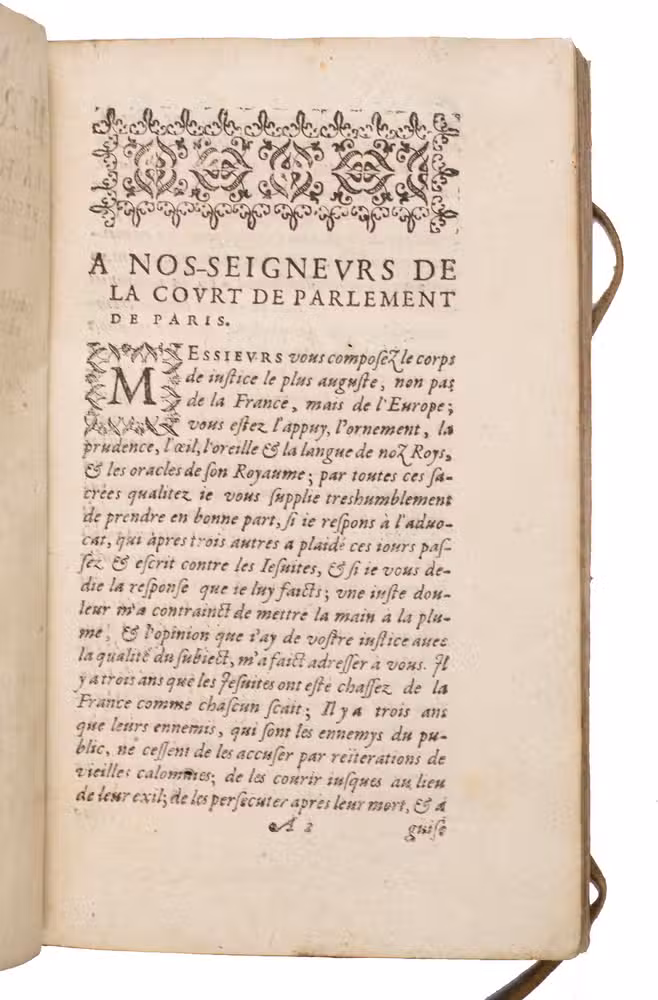 A NOS-SEIGNEVRS DE
LA COVRT DE PARLEMENT
DE PARIS.
MESSIEVRS vous composeZ le corps
de iustice le plus auguste, non pas
de la France, mais de l'Europe;
vous estez l'appuy, l'ornement, la
prudence, l'œil, l'oreille & la langue de noZ Roys,
& les oracles de son Royaume; par toutes ces sa-
crées qualitez ie vous supplie treshumblement
de prendre en bonne part, si ie respons à l'aduo-
cat, qui àpres trois autres a plaidé ces iours pas-
sez & escrit contre les Iesuites, & si ie vous de-
die la response que ie luy faicts; vne iuste dou-
leur m'a contrainct de mettre la main a la plu-
me, & l'opinion que i'ay de vostre iustice auec
la qualité du subiect, m'a faict adresser à vous. Il
y a trois ans que les Iesuites ont este chassez de la
France comme chascun scait; Il y a trois ans
que leurs ennemis, qui sont les ennemys du pu-
blic, ne cessent de les accuser par reiterations de
vieilles calomnies; de les courir iusques au lieu
de leur exil; de les persecuter apres leur mort, & a
A 2 guise